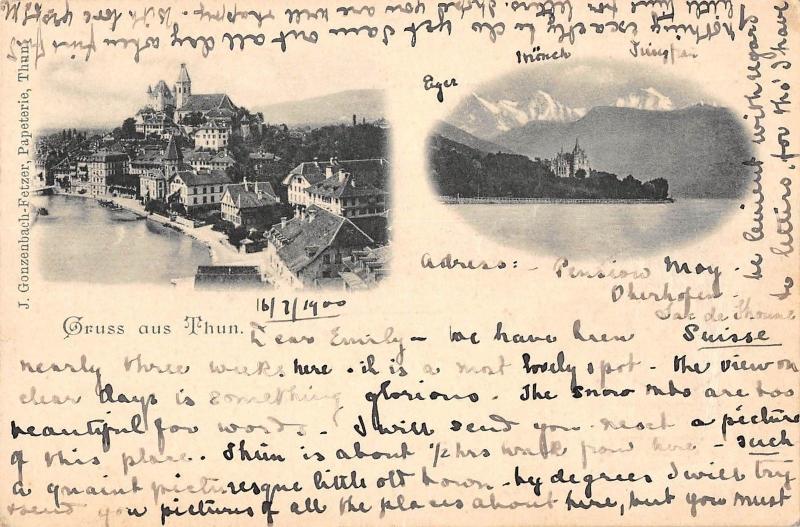 J. Gonzenbach-Fetzer, Papeterie, Thun.
Eger
Mönch
Jungfrau
Adress: - Pension May.
Oberhofen.
Lac de Thoune
Suisse
16/7/1900
Gruss aus Thun.
Dear Emily - We have been
nearly three weeks here. it is a most lovely spot. The view on
clear days is something glorious. The snow mts are too
beautiful for words. I will send you next a picture
of this place. Thun is about ½ hrs walk from here - such
a quaint picturesque little old town. by degrees I will try
send you pictures of all the places about here, but you must
be lenient with regard
to letters, for tho' I have
nothing exactly to do yet I am out all day when fine
little time for letters. Hope you are well & happy. With love yrs